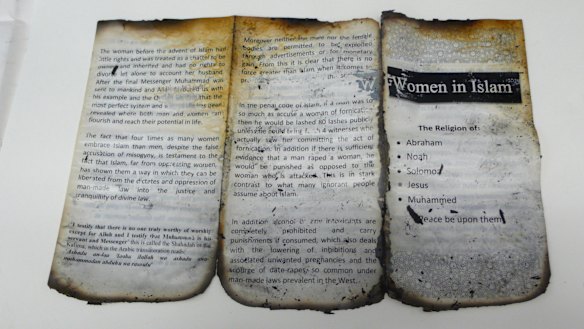 The woman before the advent of Islam had
little rights and was treated as a chattel to be
owned and inherited and had no right to
divorce let alone to account her husband.
After the final Messenger Muhammad was
sent to mankind and Allah favoured us with
his example and the
most perfect system
revealed where both man and women can
flourish and reach their potential in life.
The fact that four times as many women
embrace Islam than men, despite the false
accusation of misogyny, is testament to the
fact that Islam, far from oppressing women,
has shown them a way in which they can be
liberated from the dictates and oppression of
man-made law into the justice and
tranquility of divine law.
'I testify that there is no one truly worthy of worship
except for Allah and I testify that Muhammad is his
servant and Messenger' this is called the Shahadah or the
Kalima, which in the Arabic transliteration reads:
Moreover neither the men nor the female
bodies are permitted to be exploited
through advertisements or for monetary
gain. From this it is clear that there is no
force greater than Islam when it comes to
In the penal code of Islam, if a man was to
so much as accuse a woman of fornication
then he would be lashed 80 lashes publicly
unless he could bring forth 4 witnesses who
actually saw her committing the act of
fornication. In addition if there is sufficient
evidence that a man raped a woman, he
would be punished as opposed to the
woman who is attacked. This is in stark
contrast to what many ignorant people
assume about Islam.
In addition alcohol or any intoxicants are
completely prohibited and carry
punishments if consumed, which also deals
with the lowering of inhibitions and
associated unwanted pregnancies and the
scourge of date-rapes, so common under
man-made laws prevalent in the West.
Women in Islam
The Religion of:
• Abraham
• Noah
• Solomon
• Jesus
• Muhammed
Peace be upon them